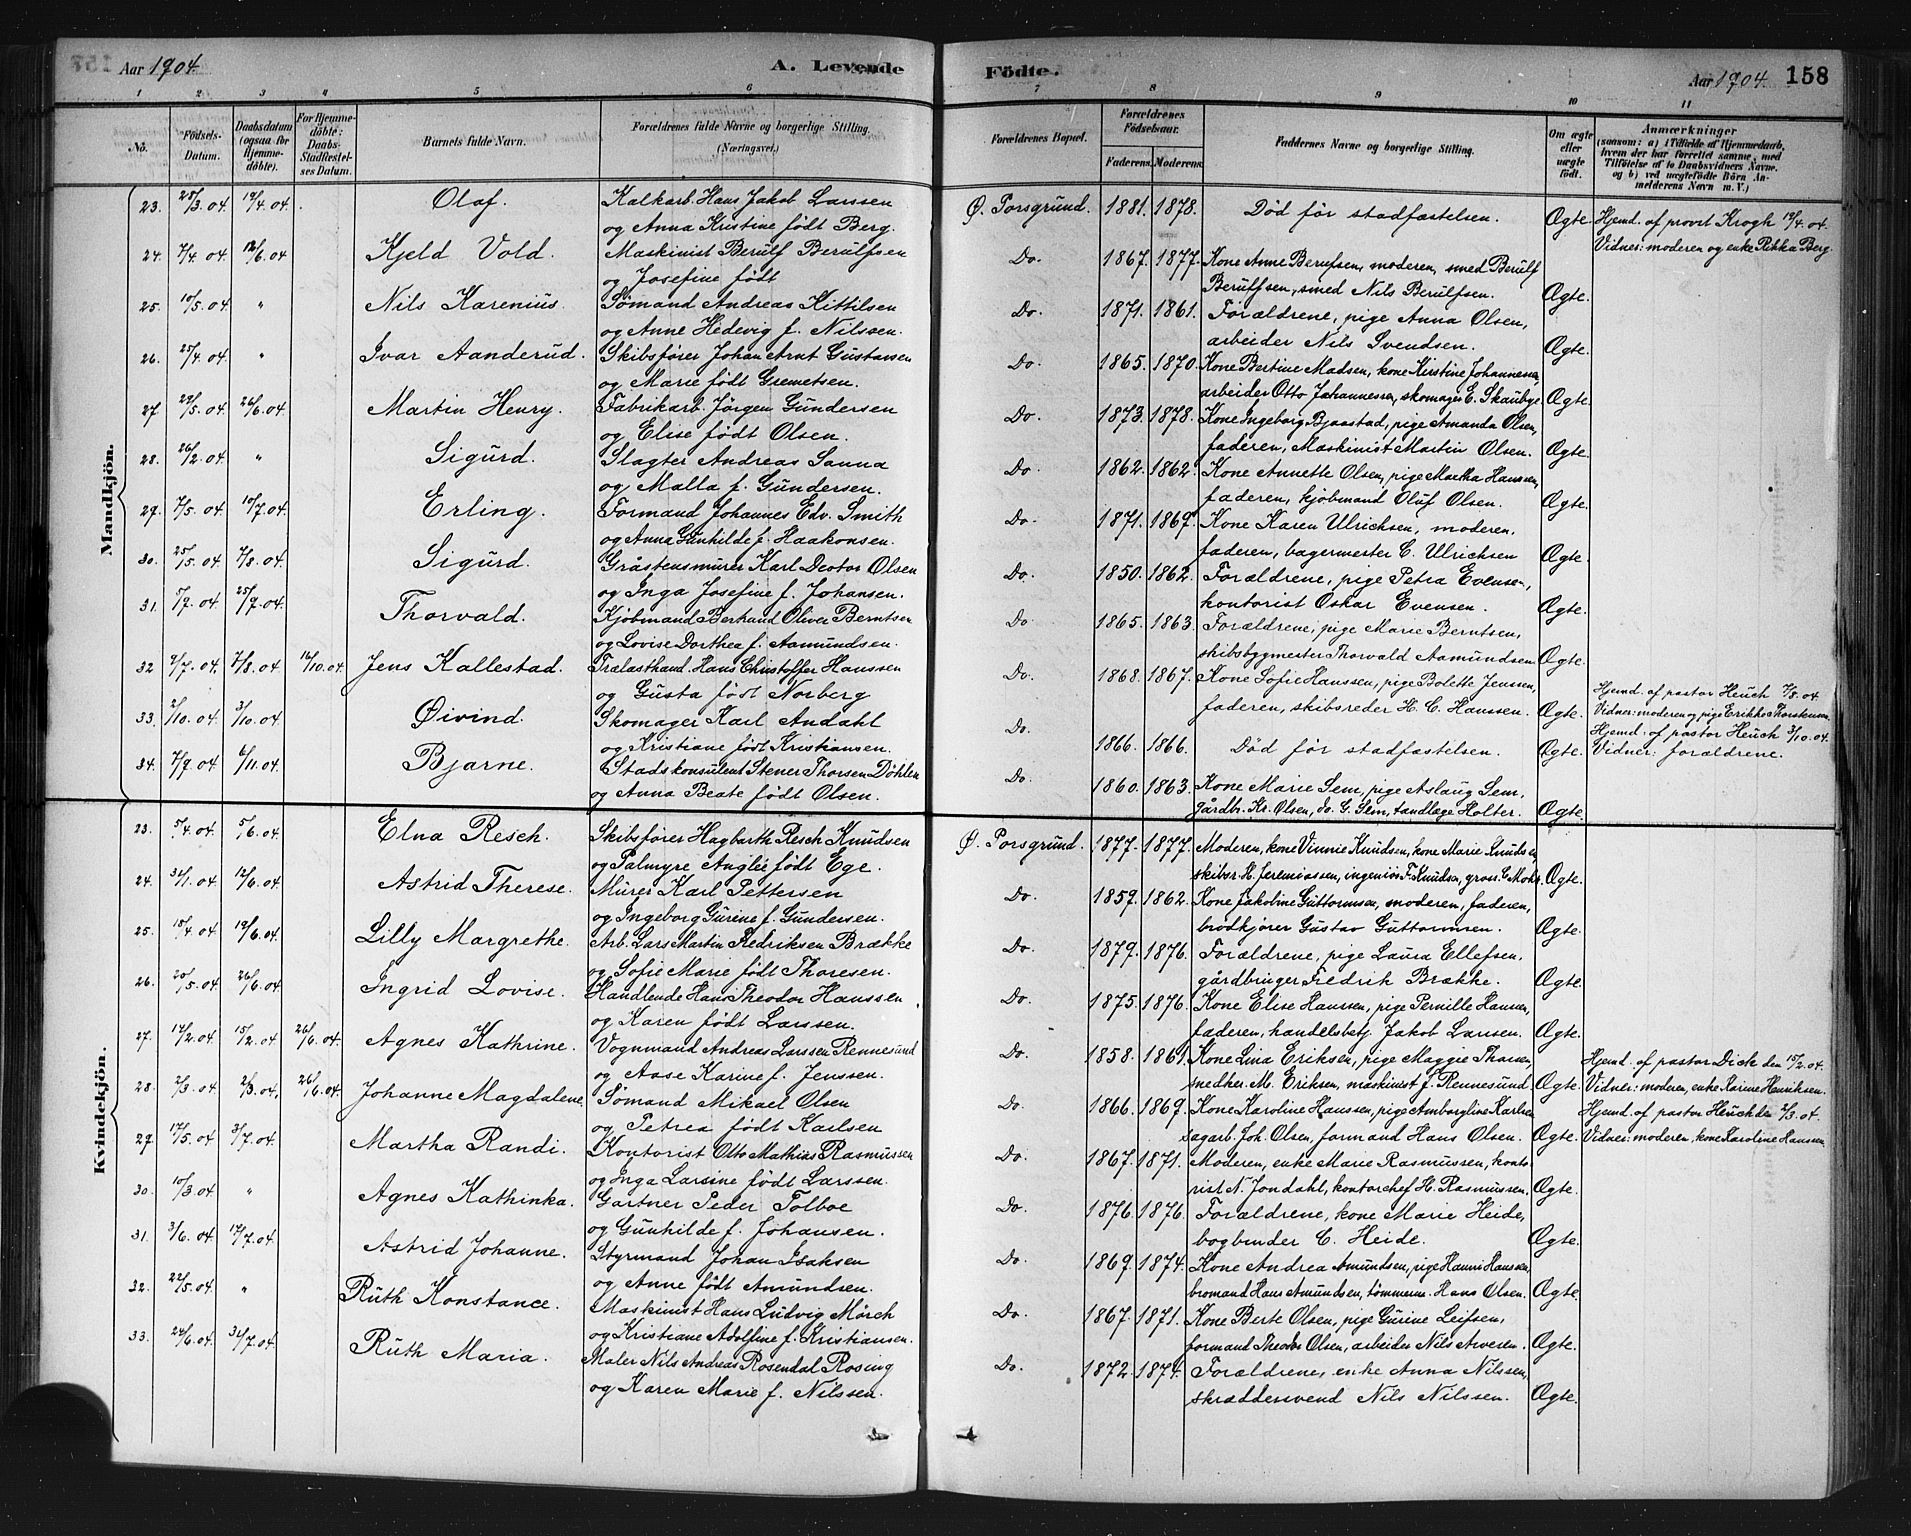 Aar 1904. A. Levende Födte. Aar 1904. 158
1 2 3 4 5 6 7 8 9 10 11
No. Födsels-Datum. Daabsdatum (ogsaa for Hjemme-döbte). For Hjemme-döbte: Daabs-Stadfæstel-ses Datum. Barnets fulde Navn. Forældrenes fulde Navne og borgerlige Stilling. (Næringsvei.) Forældrenes Bopæl. Forældrenes Födselsaar. Faderens. Moderens. Faddernes Navne og borgerlige Stilling. Om ægte eller uægte födt. Anmærkninger (saasom: a) i Tilfælde af Hjemmedaab, hvem der har forrettet samme, med Tilföielse af to Daabsvidners Navne. og b) ved uægtefödte Börn Anmelderens Navn m. V.)
Mandkjön.
23. 25/3.04. 19/4.04. Olaf. Kalkarb. Hans Jakob Larssen Ø. Porsgrund. 1881. 1878. Død før stadfæstelsen. Ægte. Hjemd. af provst Krogh 19/4.04.
og Anna Kristine født Berg. Vidner: moderen og enke Rikka Berg.
24. 7/4 04 12/6.04 Kjeld Vold. Maskinist Berulf Berulfsen Do. 1867. 1877. Kone Anne Berufsen, moderen, smed Berulf
og Josefine født Berulfsen, smed Nils Berulfsen. Ægte.
25. 10/5.04. " Nils Karenius. Sømand Andreas Kittilsen Do. 1871. 1861. Forældrene, pige Anna Olsen,
og Anne Hedevig f. Nilssen. arbeider Nils Svendsen. Ægte.
26. 25/4.04. " Ivar Aanderud. Skibsfører Johan Arnt Gustansen Do. 1865. 1870. Kone Bertine Madsen, kone Kirstine Johannessen,
og Marie født Gremetsen. arbeider Otto Johannessen, skomager E. Skaubye. Ægte.
27. 29/5.04. 26/6.04. Martin Henry. Fabrikarb. Jørgen Gundersen Do. 1873. 1878. Kone Ingeborg Bjaastad, pige Amanda Olsen,
og Elise født Olsen. faderen, Maskinist Martin Olsen. Ægte.
28. 26/2.04. " Sigurd. Slagter Andreas Sanna Do. 1862. 1862. Kone Annette Olsen, pige Martha Hanssen,
og Malla f. Gundersen. faderen, kjøbmand Oluf Olsen. Ægte.
29. 7/5.04. 10/7.04. Erling. Formand Johannes Edv. Smith Do. 1871. 1869. Kone Karen Ulrichsen, moderen,
og Anna Gunhilde f. Haakonsen. faderen, bagermester C. Ulrichsen Ægte.
30. 25/5.04. 7/8.04. Sigurd. Gråstensmurer Karl Deotor Olsen Do. 1850. 1862. Forældrene, pige Petra Evensen,
og Inga Josefine f. Johansen. kontorist Oskar Evensen. Ægte.
31. 5/9.04. 25/9.04. Thorvald. Kjøbmand Bertrand Oliver Berntsen Do. 1865. 1863. Forældrene, pige Marie Berntsen,
og Lovise Dorthea f. Aamundsen. skibsbygmester Thorvald Aamundsen Ægte.
32 9/7.04. 7/8.04 16/10.04 Jens Kallestad. Trælasthand. Hans Christoffer Hanssen Do. 1868. 1867. Kone Sofie Hanssen, pige Bolette Jenssen, Hjemd. af pastor Heuch 7/8.04.
og Gusta født Norberg faderen, skibsreder H. C. Hanssen. Ægte. Vidner: moderen og pige Erikka Thorstensen.
33. 2/10.04. 3/10.04. Øivind. Skomager Karl Andahl Do. 1866. 1866. Død før stadfæstelsen. Ægte. Hjemd. af pastor Heuch 3/10.04.
og Kristiane født Kristiansen. Vidner: forældrene.
34. 7/9.04 6/11.04. Bjarne. Stadskonsulent Stener Thorsen Døhlen Do. 1860. 1863. Kone Marie Sem, pige Aslaug Sem,
og Anna Beate født Olsen. gårdbr. Kr. Olsen, do. G. Sem, tandlæge Holter. Ægte.
Kvindekjön.
23. 5/4.04. 5/6.04. Elna Resch. Skibsfører Hagbarth Resch Knudsen Ø. Porsgrund. 1877. 1877. Moderen, kone Vinnie Knudsen, kone Marie Knudsen
og Palmyre Anglée født Ege. skibsr. H. Jeremiassen, ingeniør F. Knudsen, gross. C. Mohr. Ægte.
24. 31/1.04. 12/6.04. Astrid Therese. Murer Karl Pettersen Do. 1859. 1862. Kone Jakobine Guttormsen, moderen, faderen,
og Ingeborg Gurine f. Gundersen. brødkjører Gustav Guttormsen. Ægte.
25. 18/4.04 19/6.04. Lilly Margrethe. Arb. Lars Martin Fredriksen Brække Do. 1879. 1876. Forældrene, pige Laura Ellefsen,
og Sofie Marie født Thoresen. gårdbruger Fredrik Brække. Ægte.
26. 20/5.04 26/6.04. Ingrid Lovise. Handlende Hans Theodor Hanssen Do. 1875. 1876. Kone Elise Hanssen, pige Pernille Hanssen,
og Karen født Larssen. faderen, handelsbetj. Jakob Larsen. Ægte.
27. 14/2.04 15/2.04 26/6.04. Agnes Kathrine. Vognmand Andreas Larssen Rennesund Do. 1858. 1861. Kone Lina Eriksen, pige Maggie Thorsen, Hjemd. af pastor Dick den 15/2.04.
og Aase Karine f. Jenssen. snedker M. Eriksen, maskinist J. Rennesund Ægte. Vidner: moderen, enke Karine Henriksen.
28. 2/3.04 2/3.04. 26/6.04. Johanne Magdalene. Sømand Mikael Olsen Do. 1866. 1869. Kone Karoline Hanssen, pige Amborgline Karlsen Hjemd. af pastor Heuch den 2/3.04.
og Petrea født Karlsen sagarb. Joh. Olsen, formand Hans Olsen. Ægte. Vidner: moderen, kone Karoline Hanssen.
29. 17/5.04 3/7.04. Martha Randi. Kontorist Otto Mathias Rasmussen Do. 1867. 1871. Moderen, enke Marie Rasmussen, konto-
og Inga Larsine født Larssen. rist N. Jondahl, kontorchef H. Rasmussen. Ægte.
30. 10/3.04 " Agnes Kathinka. Gartner Peder Tolboe Do. 1876. 1876. Forældrene, kone Marie Heide,
og Gunhilde f. Johansen. bogbinder C. Heide. Ægte.
31. 3/6.04. 17/7.04. Astrid Johanne. Styrmand Johan Isaksen Do. 1869. 1874. Kone Andrea Amundsen, pige Hanni Hanssen,
og Anne født Amundsen. bromand Hans Amundsen, tømmerm. Hans Olsen. Ægte.
32. 22/5.04. " Ruth Konstance. Maskinist Hans Ludvig Mörch Do. 1867. 1871. Kone Berte Olsen, pige Gurine Leifsen,
og Kristiane Adolfine f. Kristiansen. formand Theodor Olsen, arbeider Nils Arvesen. Ægte.
33. 24/6.04. 31/7.04. Ruth Maria. Maler Nils Andreas Rosendal Rosing Do. 1872. 1874. Forældrene, enke Anna Nilssen,
og Karen Marie f. Nilssen. skræddersvend Nils Nilssen. Ægte.